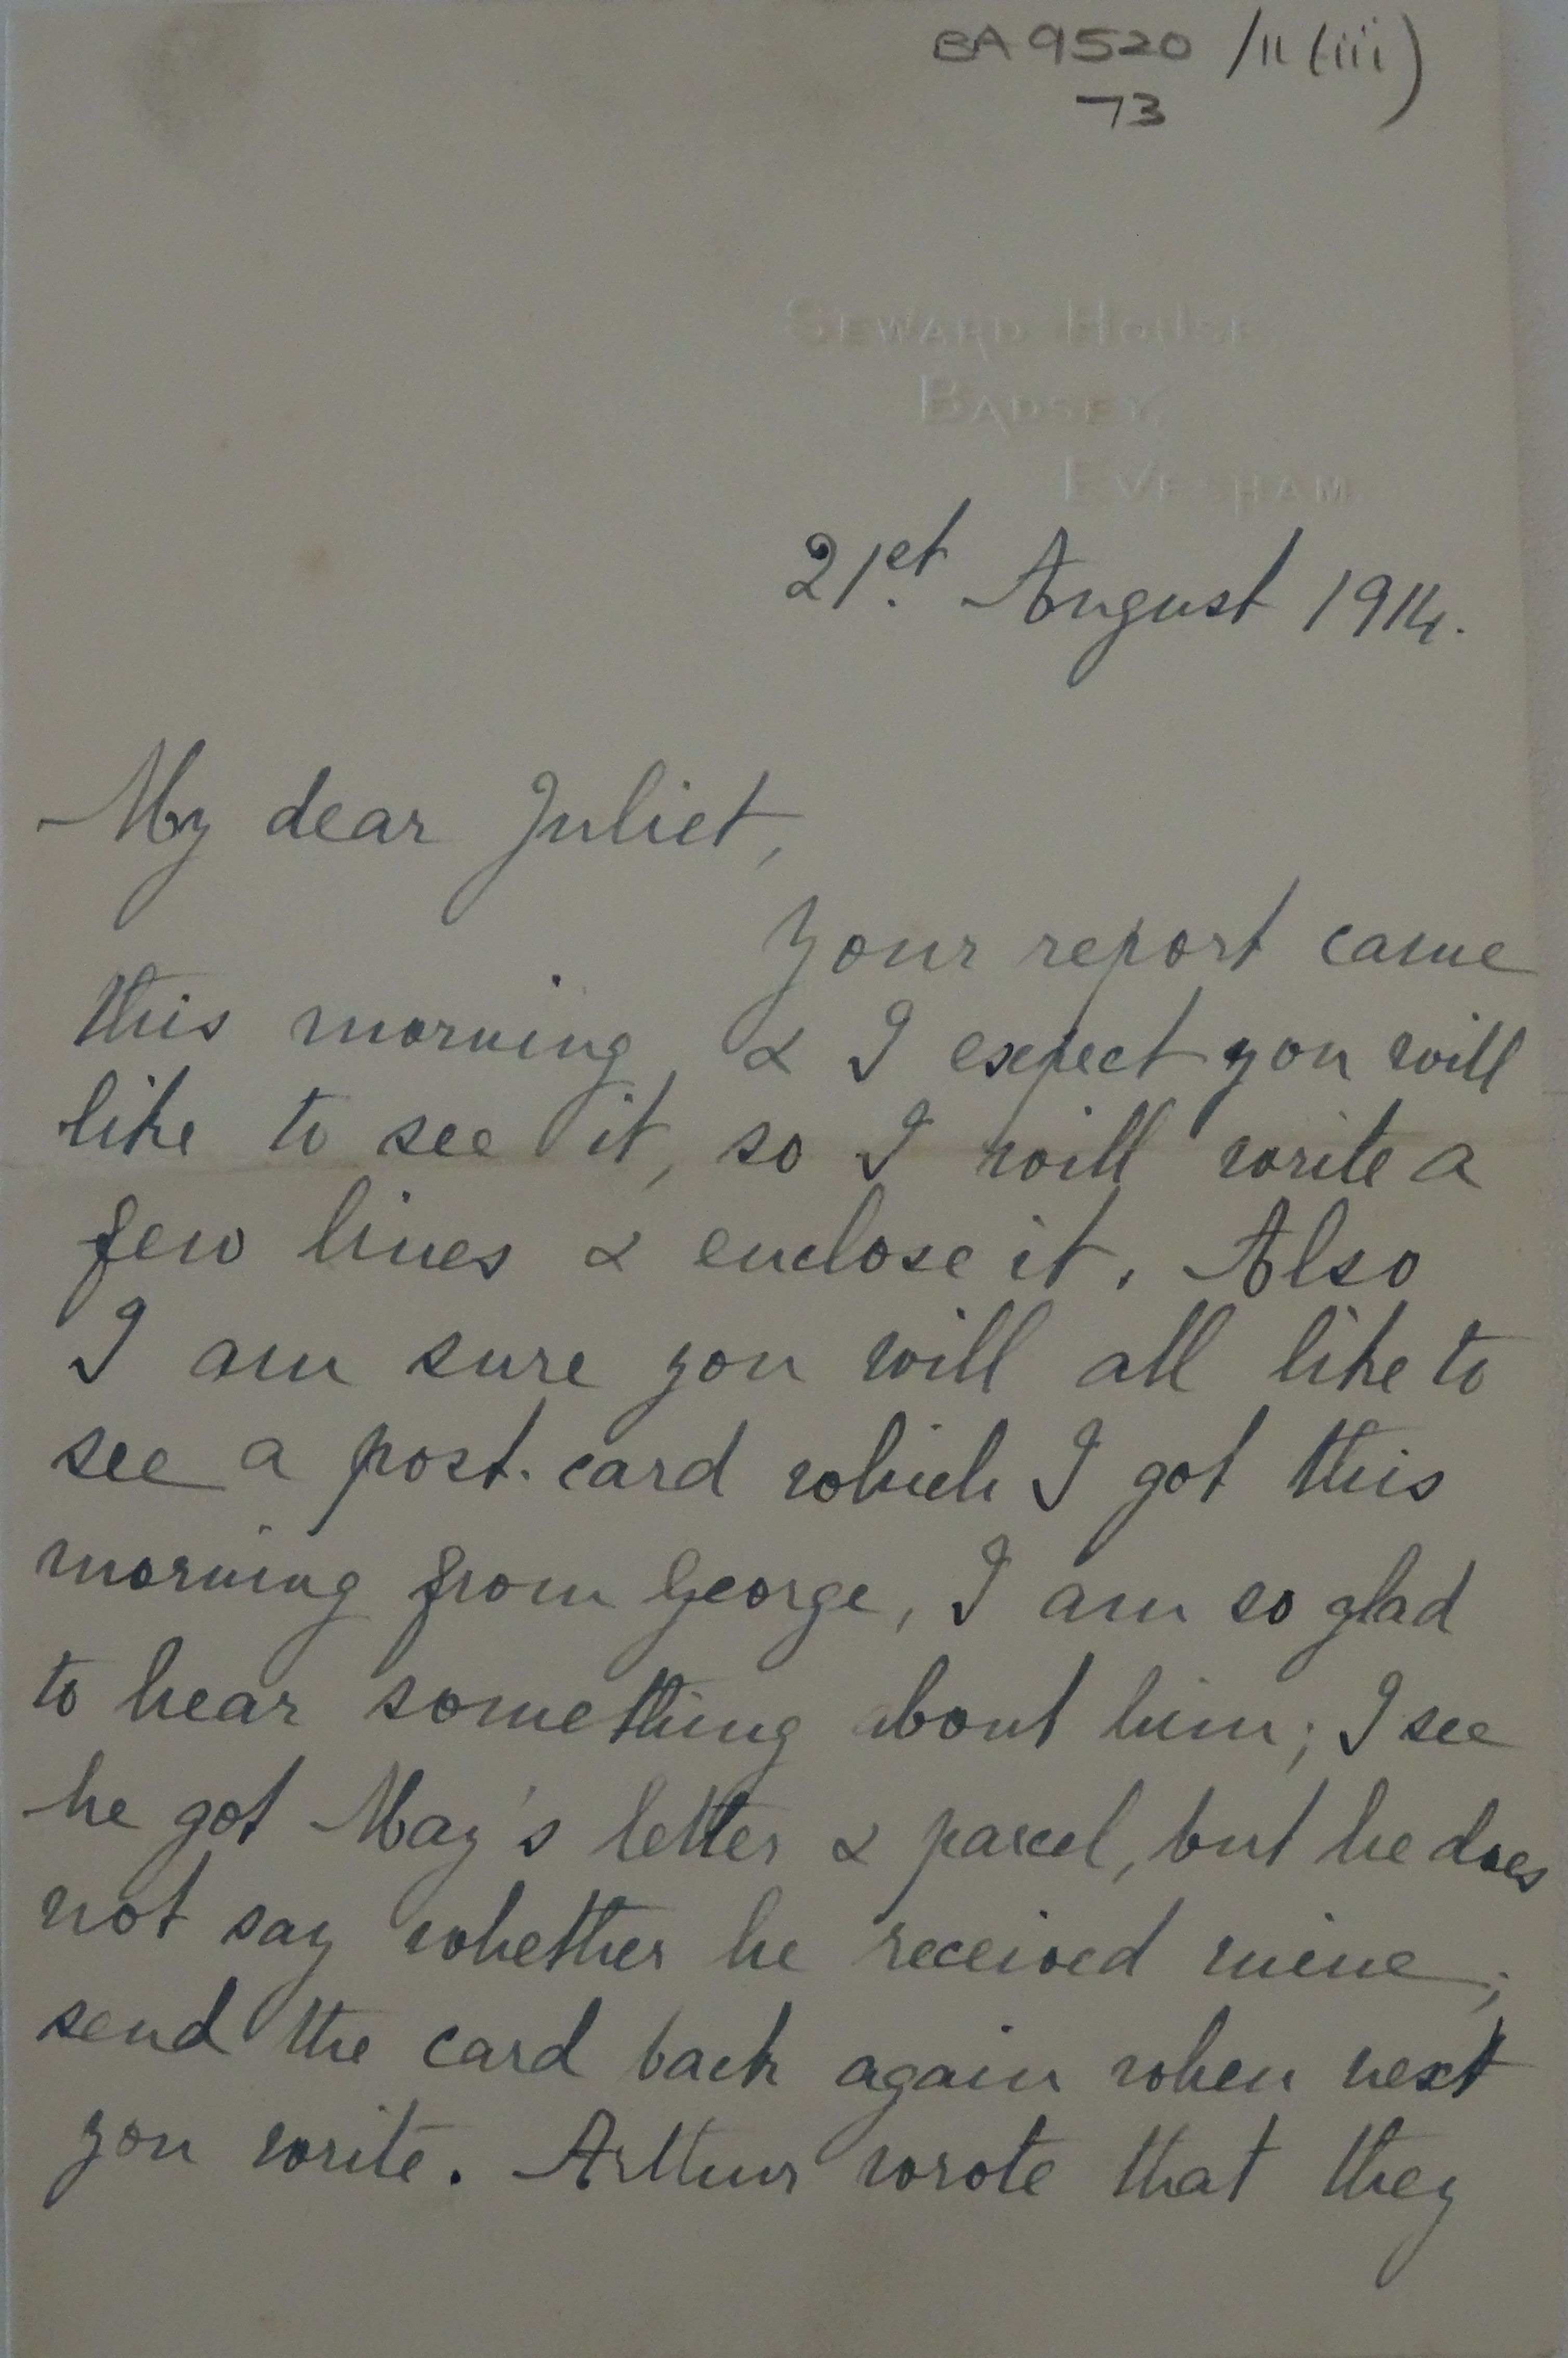 BA 9520 /11 (iii)
73
SEWARD HOUSE,
BADSEY,
EVESHAM
21st. August 1914.
My dear Juliet,
Your report came
this morning & I expect you will
like to see it, so I will write a
few lines & enclose it. Also
I am sure you will all like to
see a post.card which I got this
morning from George, I am so glad
to hear something about him; I see
he got May's letter & parcel, but he does
not say whether he received mine;
send the card back again when next
you write. Arthur wrote that they